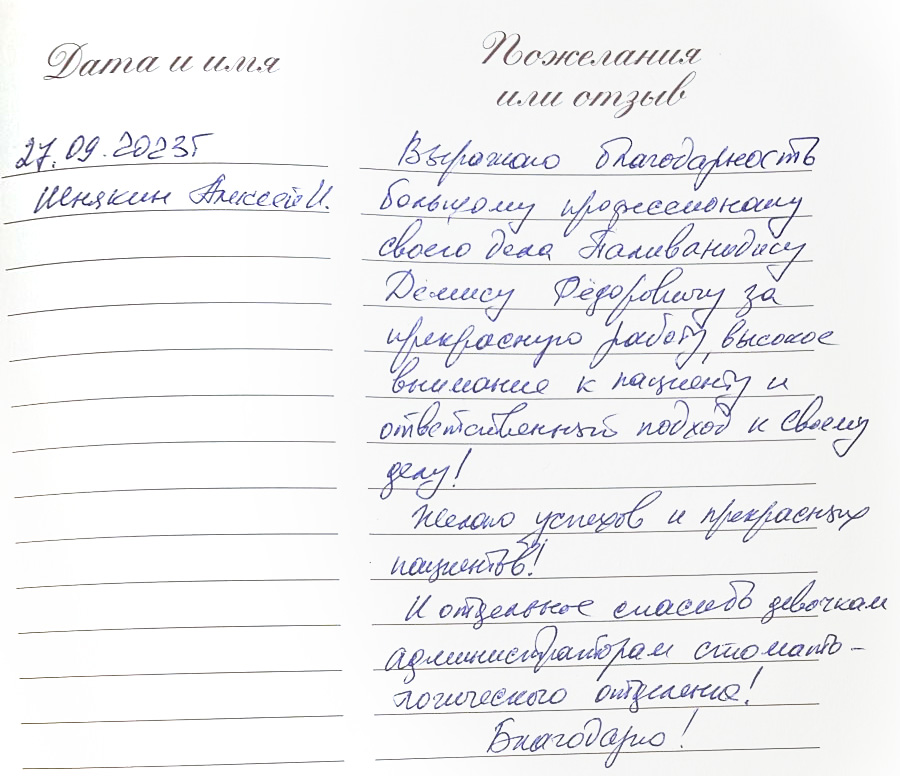 Дата и имя
Пожелания
или отзыв
27.09.2023г
Шнякин Алексей И.
Выражаю благодарность
большому профессионалу
своего дела Паливаниди су
Дёмису Фёдоровичу за
прекрасную работу, высокое
внимание к пациенту и
ответственный подход к своему
делу!
Желаю успехов и прекрасных
пациентов!
И отдельное спасибо девочкам
администраторам стомато-
логического отделения!
Благодарю!